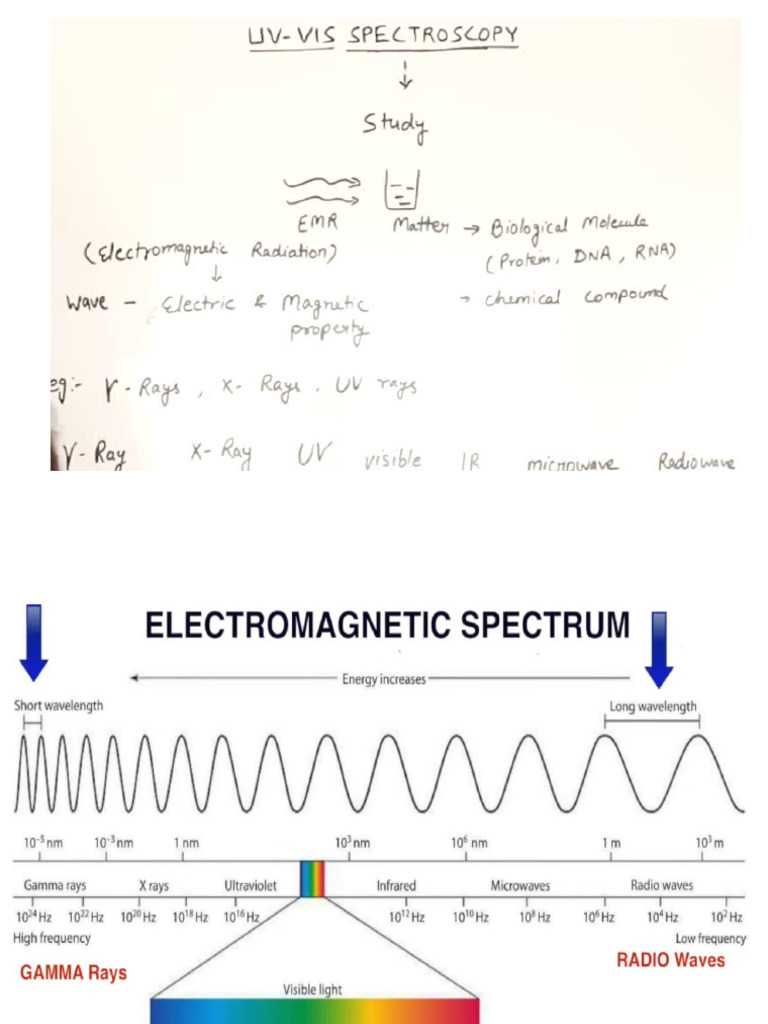 UV-VIS SPECTROSCOPY
Study
EMR Matter → Biological Molecule
(Electromagnetic Radiation) (Protein, DNA, RNA)
Wave - Electric & Magnetic property → chemical compound
eg:- γ-Rays, X-Rays, UV rays
γ-Ray X-Ray UV visible IR microwave Radiowave
ELECTROMAGNETIC SPECTRUM
Energy increases
Short wavelength Long wavelength
10⁻⁵ nm 10⁻³ nm 1 nm 10³ nm 10⁶ nm 1 m 10³ m
Gamma rays X rays Ultraviolet Infrared Microwaves Radio waves
10²⁴ Hz 10²² Hz 10²⁰ Hz 10¹⁸ Hz 10¹⁶ Hz 10¹² Hz 10¹⁰ Hz 10⁸ Hz 10⁶ Hz 10⁴ Hz 10² Hz
High frequency Low frequency
GAMMA Rays RADIO Waves
Visible light